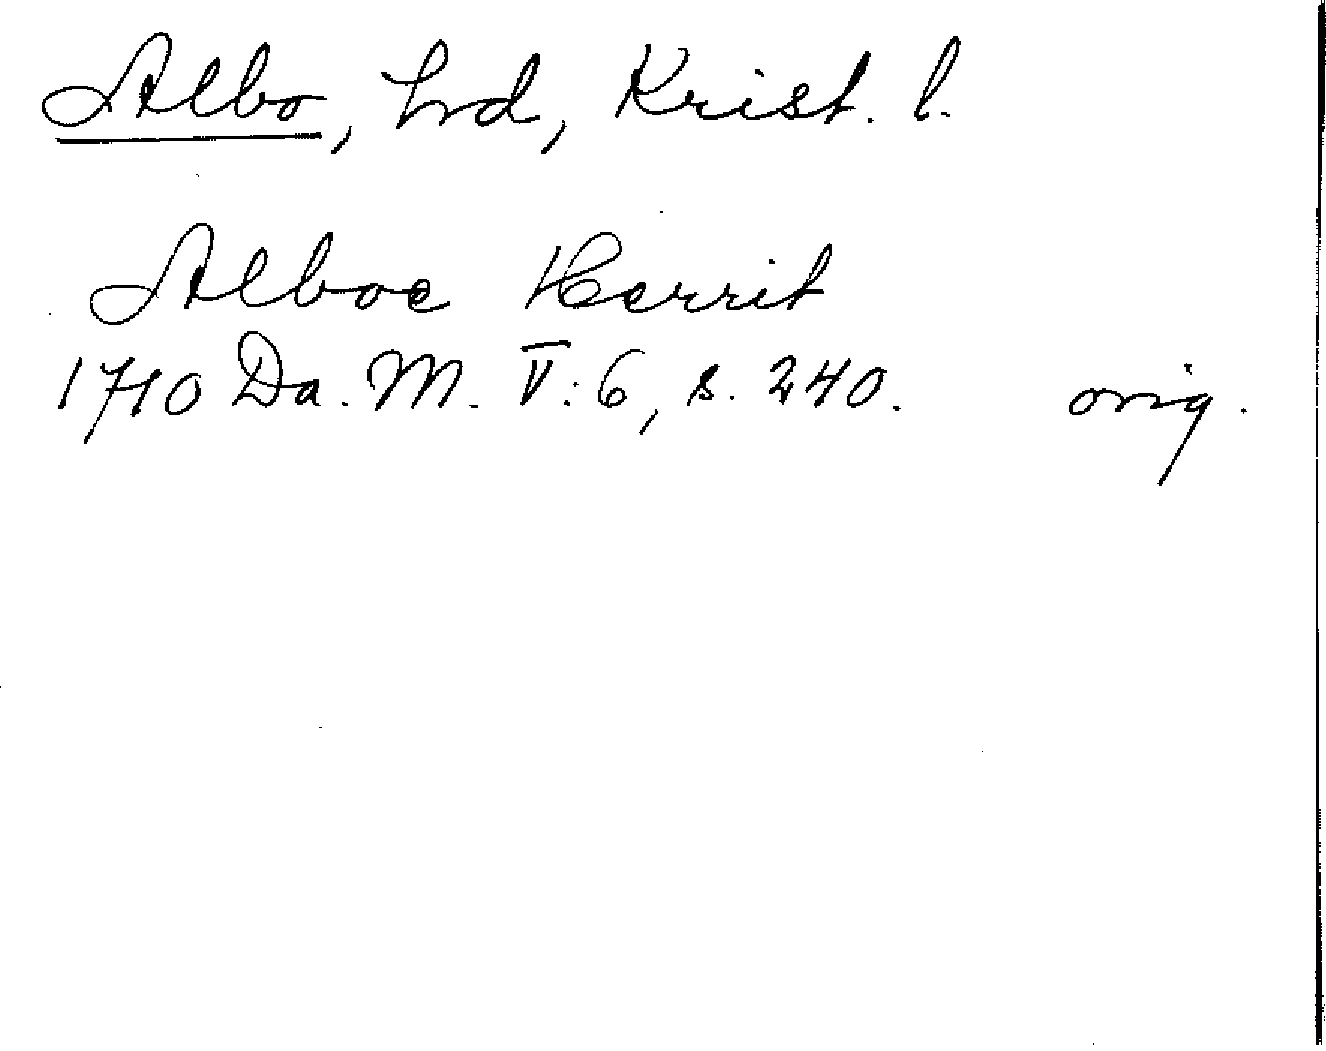 Albo, hrd, Krist. l.
Alboe Herrit
1710 Da. M. V:6, s. 240. orig.